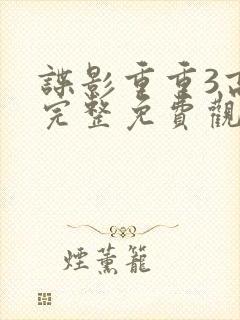 諜影重重3
完整免費觀
煙薰籠